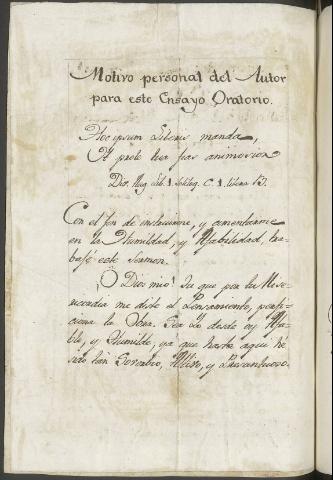 Motivo personal del Autor
para este Ensayo Oratorio.
Hoc ipsum Literis manda,
Ut prole hoc fias animosior
Div. Aug. Lib. 1 Soliloq. C. 1. litera D.
Con el fin de instruirme, y amentarme
en la Humildad, y Afabilidad, tra-
bajé este Sermon.
¡O Dios mio! Tu que por tu Mise-
ricordia me diste el Pensamiento, perfec-
ciona la Obra. Sea Yo desde oy Afa-
ble, y Humilde, ya que hasta aqui hé
sido tán Sobervio, Altivo, y